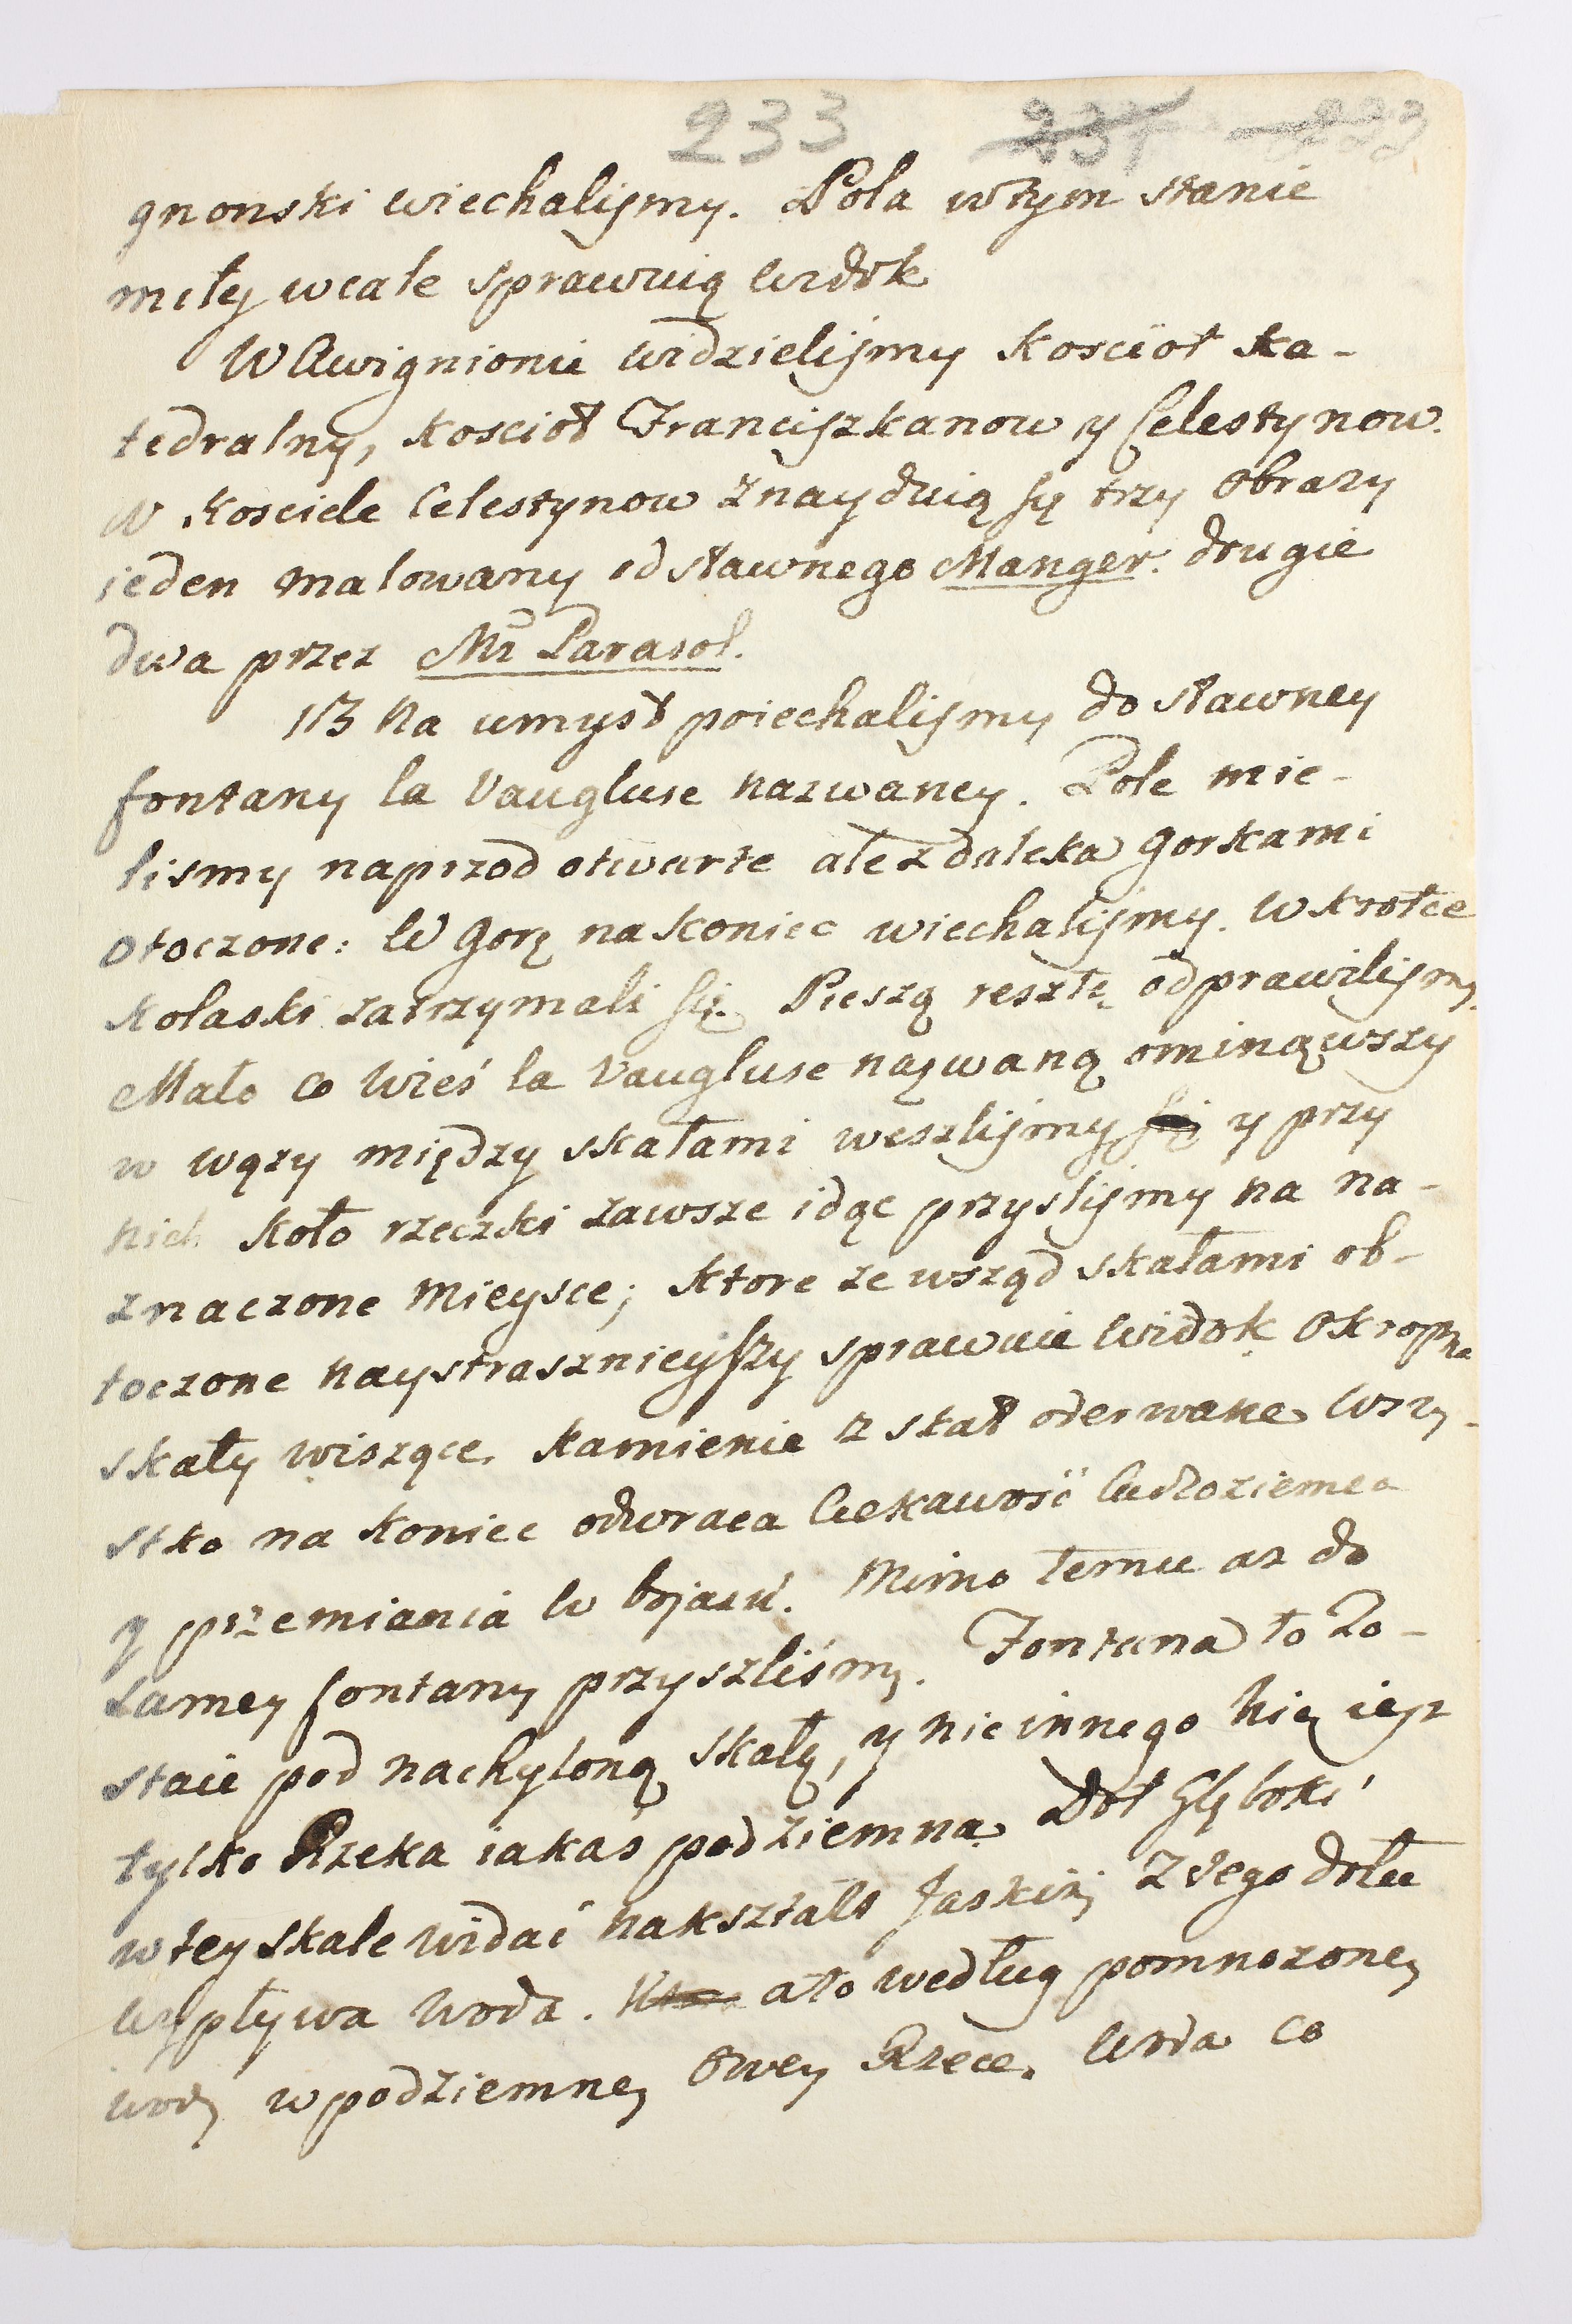 233 237 233
gnonski wiechalismy. Pola w tym stanie
miły wcale sprawuią widok
W Awignioniu widzielismy Koscioł Ka-
tedralny, Koscioł Franciszkanow y Celestynow.
W Kosciele Celestynow znayduią się trzy obrazy
ieden malowany od sławnego Manger. drugie
dwa przez Mr Parasol.
13 Na umysł poiechalismy do sławney
fontany la Vaugluse nazwaney. Pole mie-
lismy naprzod otwarte ale z daleka gorkami
otoczone: W Gorę na koniec wiechalismy. W krotce
Kolaski zatrzymali się. Pieszą resztę odprawilismy.
Mało co wieś la Vaugluse nazwaną ominąwszy
w wązy między skałami weszlismy się y przy
nich koło rzeczki zawsze idąc przyslismy na na-
znaczone mieysce; ktore ze wsząd skałami ob-
toczone naystrasznieyszy sprawuie widok okropne
skały wiszące. Kamienie z skał oderwane wszy-
stko na koniec odwraca Ciekawość Cudzoziemca
y przemiania w bojazń. Mimo temu az do
samey fontany przyszliśmy. Fontana to Zo-
staie pod nachyloną skałą, y nic innego nie iest
tylko Rzeka iakaś podziemna. Doł Głęboki
w tey skale widać nakształt Jaskini Z tego dołu
wypływa woda. a to według pomnozoney
wody w podziemney owey Rzece. Woda co